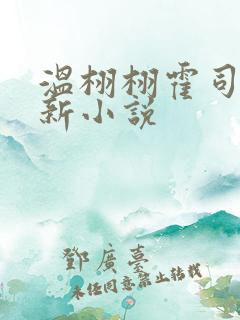 温栩栩霍司
新小说
鄧廣臺
未经同意禁止转载